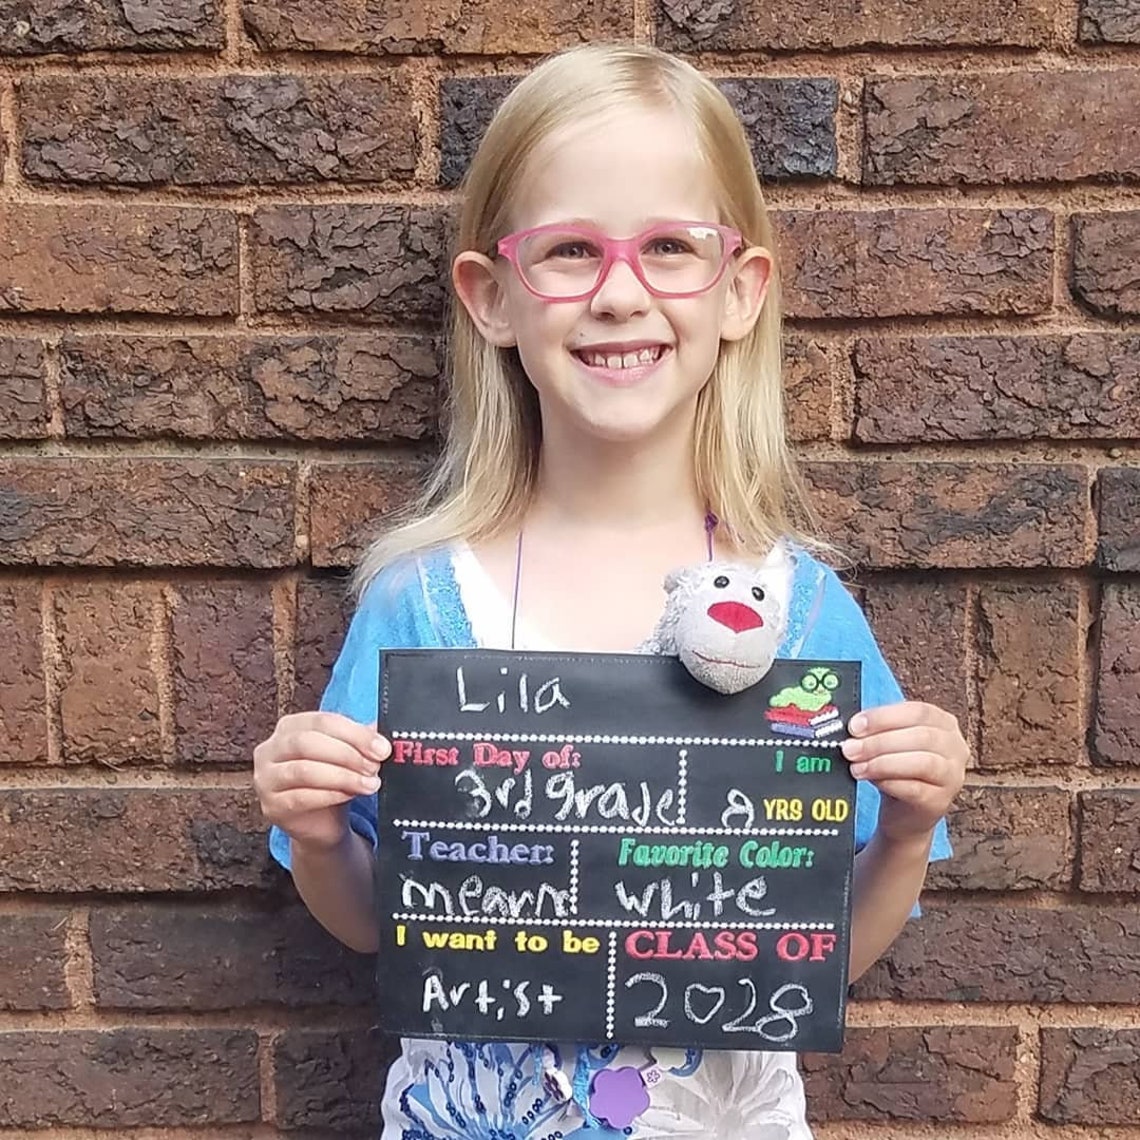 Lila
First Day of: I am
3rd grade 8 YRS OLD
Teacher: Favorite Color:
white
I want to be CLASS OF
Artist 2028